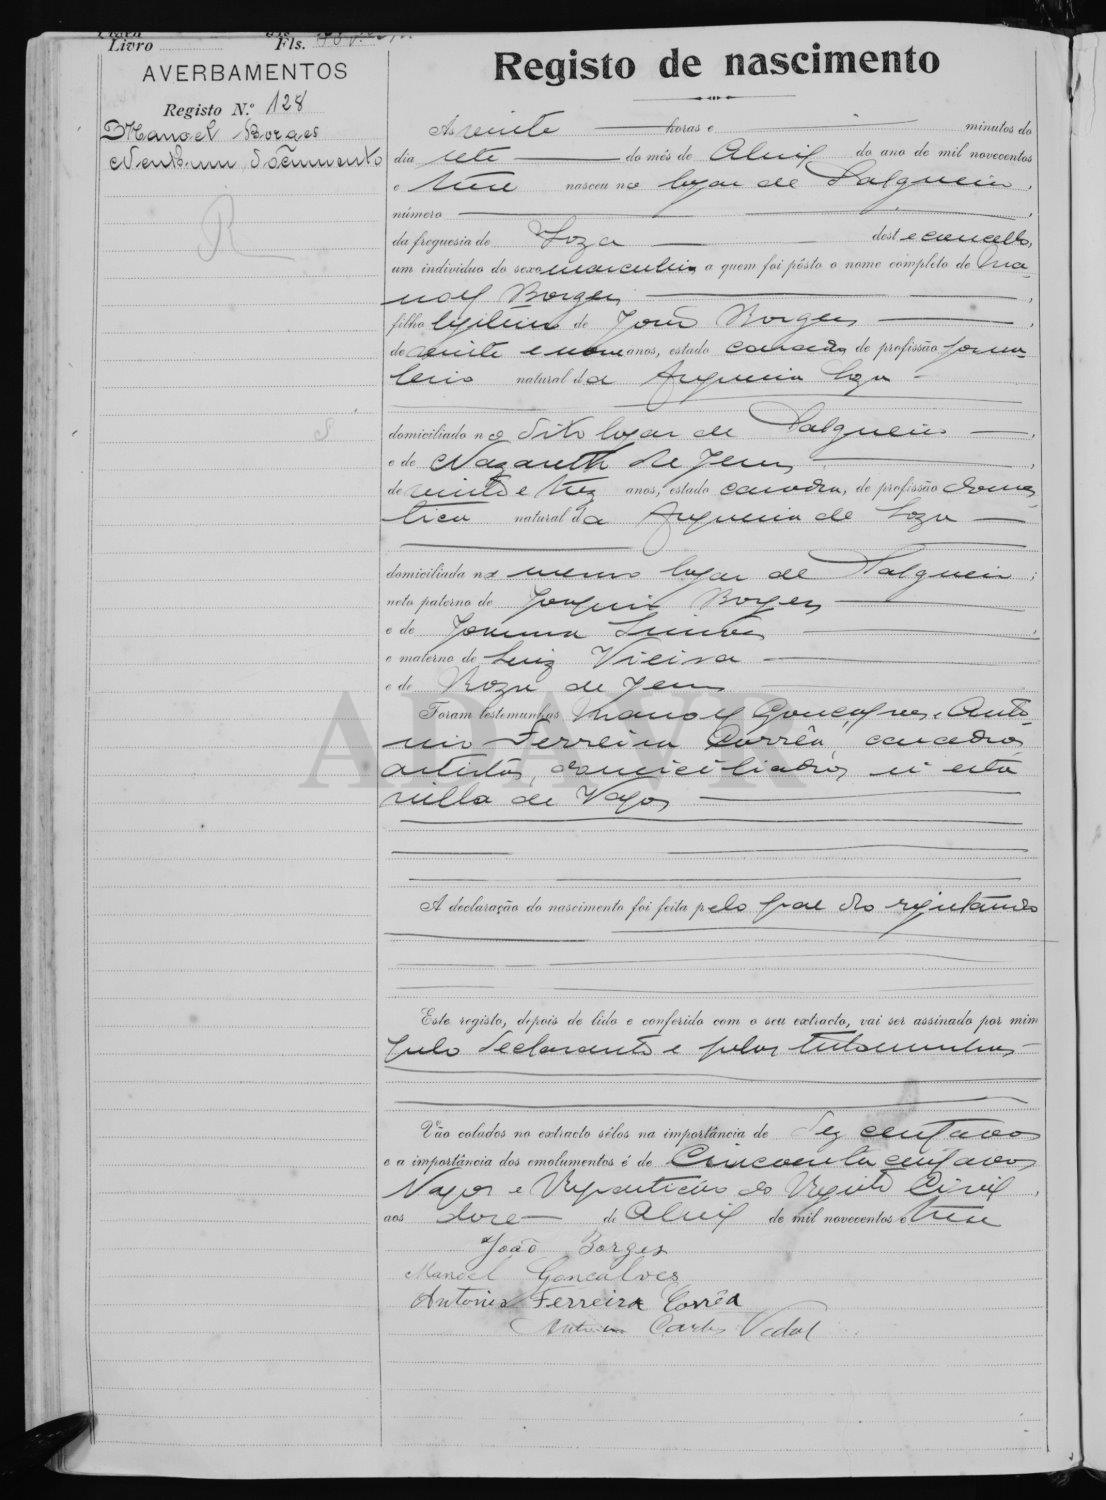 Livro Fls.
AVERBAMENTOS
Registo N.º 128
Manoel Borges
Nenhum documento
R
Registo de nascimento
Ás vinte horas e minutos do
dia sete do mês de Abril do ano de mil novecentos
e treze nasceu no logar de Salgueiro,
número
da freguesia de Soza deste concelho,
um indivíduo do sexo masculino a quem foi pôsto o nome completo de Ma-
noel Borges,
filho legitimo de João Borges,
de vinte e nove anos, estado casado, de profissão jorna-
leiro natural da freguesia Soza
domiciliado no dito logar de Salgueiro,
e de Nazareth de Jesus,
de vinte e trez anos, estado casada, de profissão domes-
tica natural da freguesia de Soza
domiciliada no mesmo logar de Salgueiro;
neto paterno de Joaquim Borges
e de Joanna Simões,
e materno de Luiz Vieira
e de Roza de Jesus
ADAVR
Foram testemunhas Manoel Gonçalves e Anto-
nio Ferreira Corrêa, casados,
artistas, domiciliados n'esta
villa de Vagos
A declaração do nascimento foi feita pelo pae do registando
Este registo, depois de lido e conferido com o seu extracto, vai ser assinado por mim
pelo declarante e pelas testemunhas
Vão colados no extracto sêlos na importância de dez centavos
e a importância dos emolumentos é de Cincoenta centavos
Vagos e Repartição do Registo Civil,
aos doze de Abril de mil novecentos e treze
João Borges
Manoel Goncalves
Antonio Ferreira Corrêa
Carlos Vidal